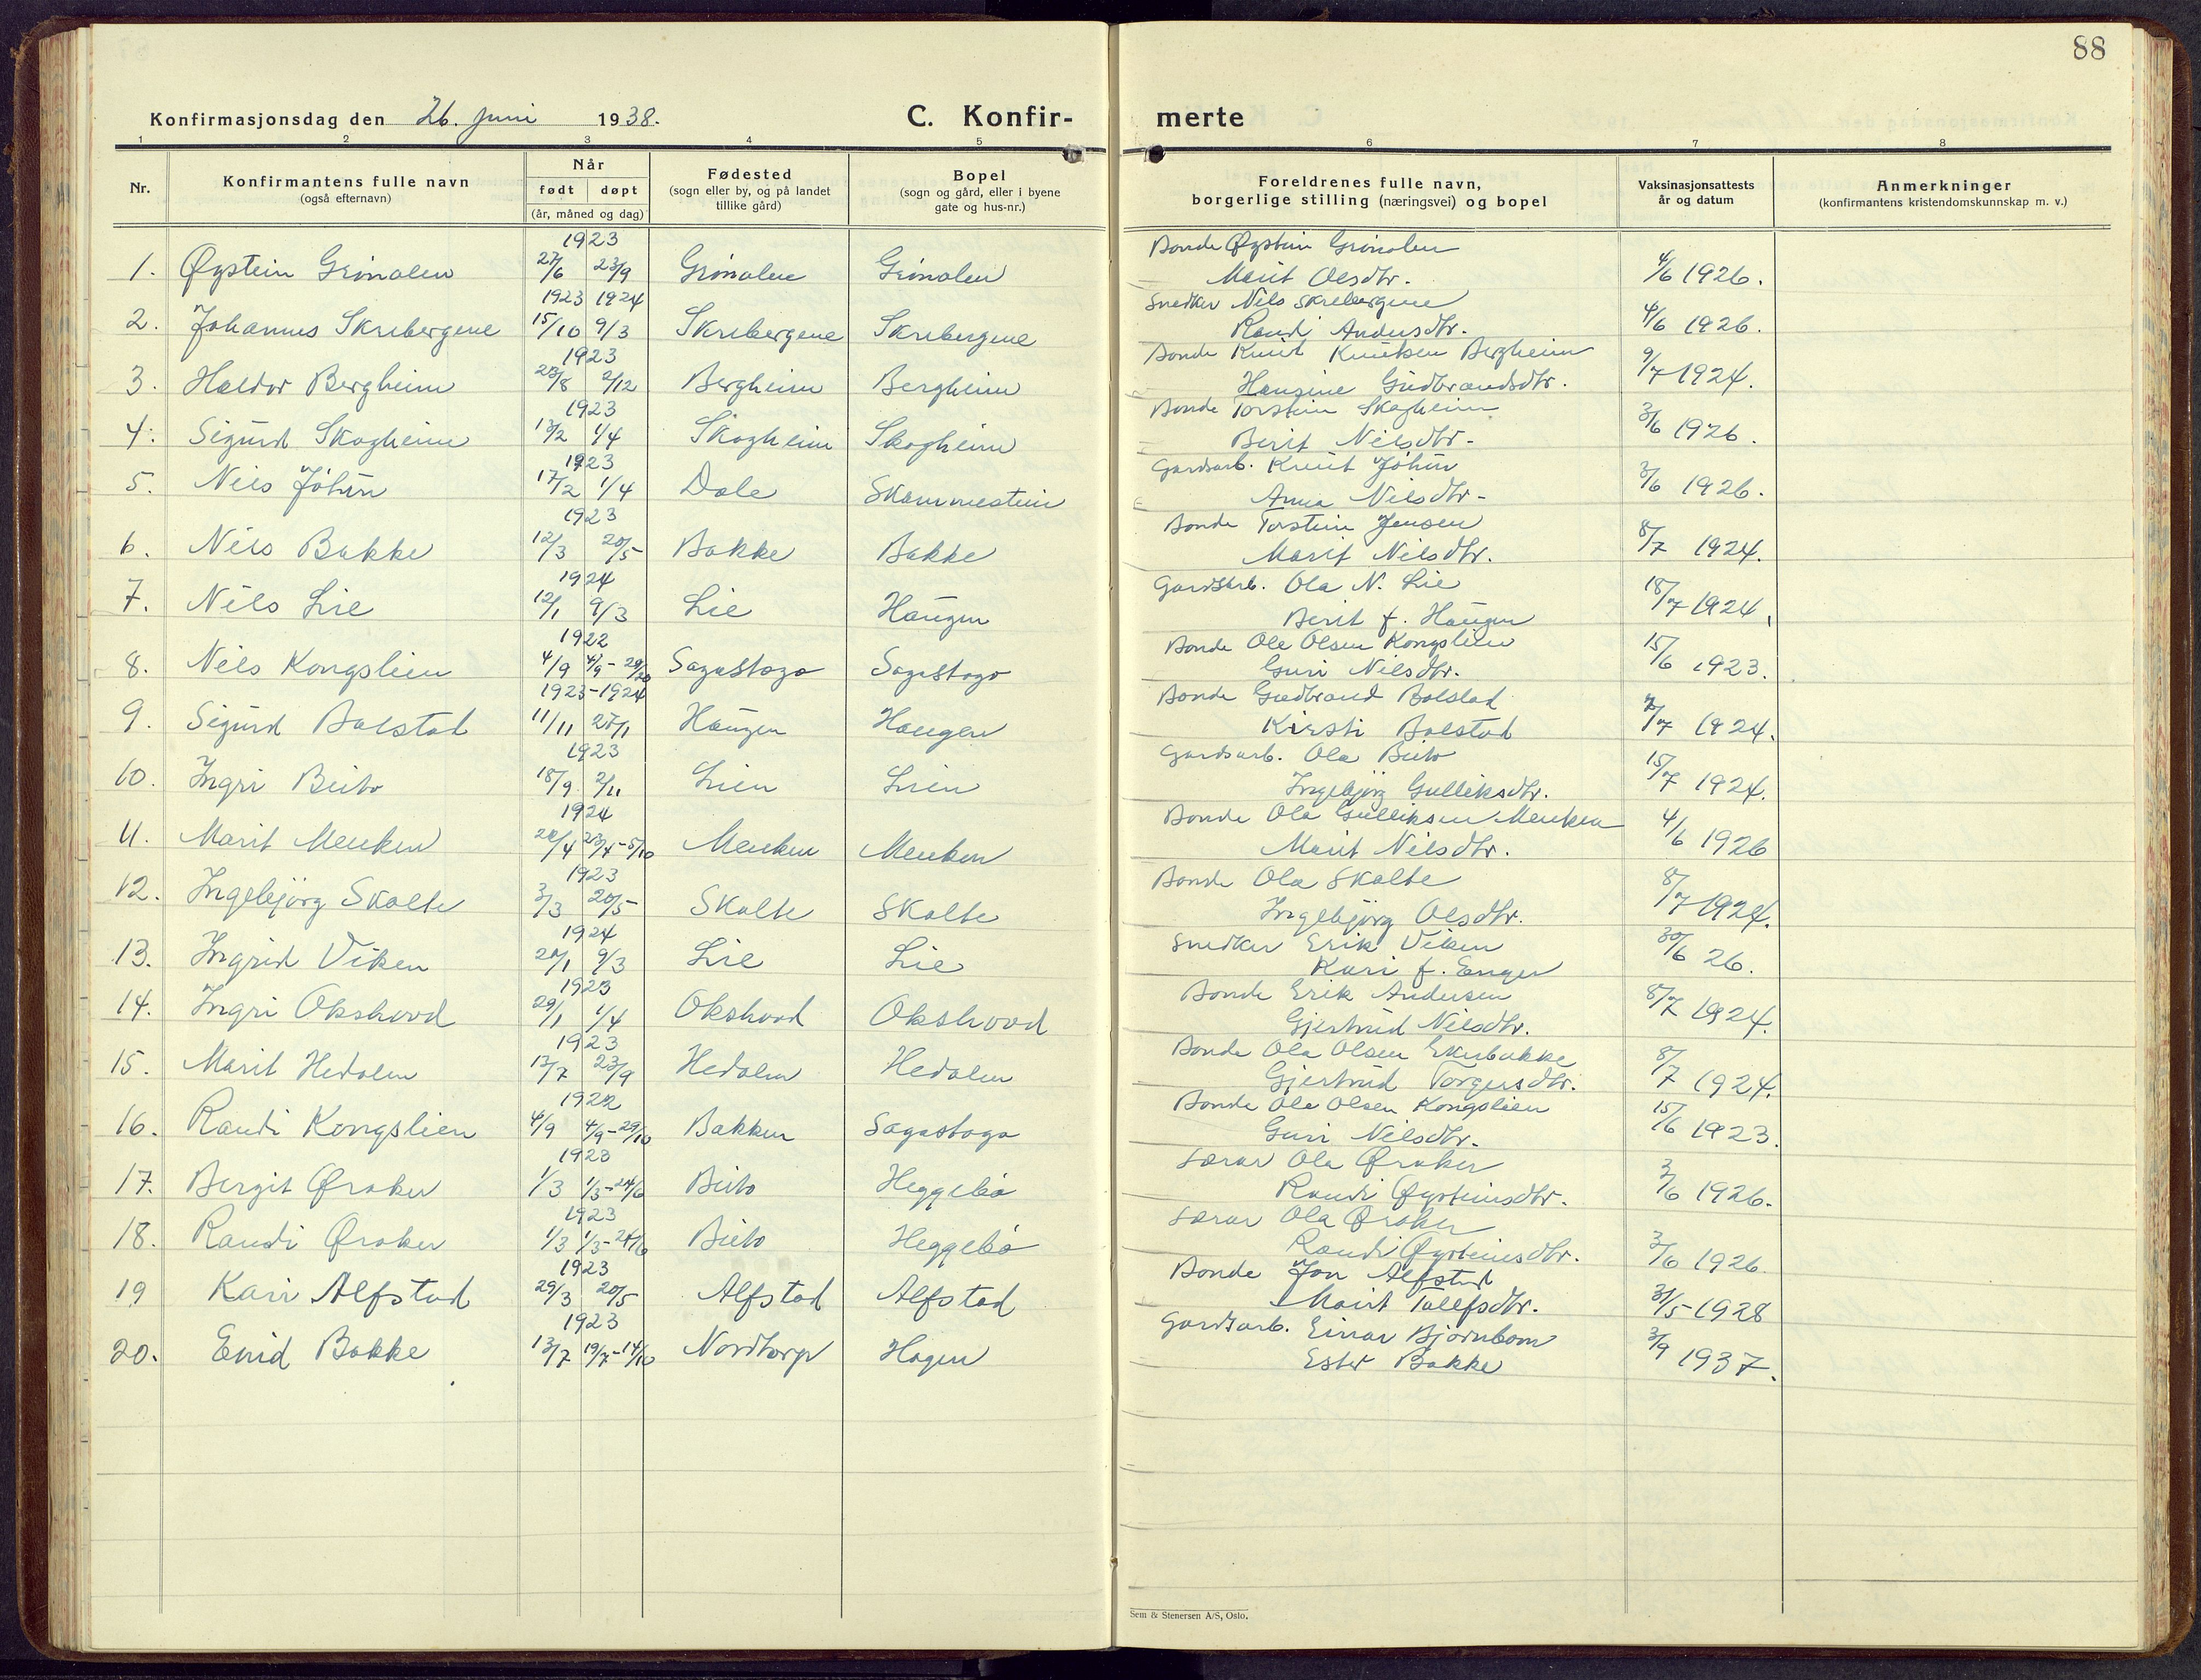 88
Konfirmasjonsdag den 26. juni 1938. C. Konfir- merte
1 2 3 4 5 6 7 8
Nr. Konfirmantens fulle navn (også efternavn) Når født døpt (år, måned og dag) Fødested (sogn eller by, og på landet tillike gård) Bopel (sogn og gård, eller i byene gate og hus-nr.) Foreldrenes fulle navn, borgerlige stilling (næringsvei) og bopel Vaksinasjonsattests år og datum Anmerkninger (konfirmantens kristendomskunnskap m. v.)
1923 Bonde Øystein Grönolen
1. Øystein Grönolen 27/6 23/9 Grönolen Grönolen Marit Olsdtr. 4/6 1926.
1923 1924 Snedker Nils Skrebergene
2. Johannes Skrebergene 15/10 9/3 Skrebergene Skrebergene Randi Andersdtr. 4/6 1926.
1923 Bonde Knut Knutsen Bergheim
3. Haldor Bergheim 28/8 2/12 Bergheim Bergheim Hansine Gudbrandsdtr. 9/7 1924.
1923 Bonde Torstein Skogheim
4. Sigurd Skogheim 13/2 1/4 Skogheim Skogheim Berit Nilsdtr. 3/6 1926.
1923 Gardsarb. Knut Jóhún
5. Nils Jóhún 17/2 1/4 Dale Skammestein Anna Nilsdtr. 3/6 1926.
1923 Bonde Torstein Jensen
6. Nils Bakke 12/3 20/5 Bakke Bakke Marit Nilsdtr. 8/7 1924.
1924 Gardsarb. Ola N. Lie
7. Nils Lie 12/1 9/3 Lie Haugen Berit f. Haugen 18/7 1924.
1922 Bonde Ole Olsen Kongslien
8. Nils Kongslien 4/9 4/9-29/10 Sagastogo Sagastogo Guri Nilsdtr. 15/6 1923.
1923-1924 Bonde Gudbrand Bolstad
9. Sigurd Bolstad 11/11 27/1 Haugen Haugen Kirsti Bolstad 7/7 1924.
1923 Gardsarb. Ola Beito
10. Ingri Beito 18/9 2/11 Lien Lien Ingebjörg Gulliksdtr. 15/7 1924.
1924 Bonde Ola Gulliksen Menken
11. Marit Menken 20/4 23/4-5/10 Menken Menken Marit Nilsdtr. 4/6 1926
1923 Bonde Ola Skolte
12. Ingebjörg Skolte 3/3 20/5 Skolte Skolte Ingebjörg Olsdtr. 8/7 1924.
1924 Snedker Erik Viken
13. Ingrid Viken 20/1 9/3 Lie Lie Kari f. Enger 30/6 26.
1923 Bonde Erik Andersen
14. Ingri Okshovd 29/1 1/4 Okshovd Okshovd Gjertrud Nilsdtr. 8/7 1924.
1923 Bonde Ola Olsen Ekerbakke
15. Marit Hedalen 13/7 23/9 Hedalen Hedalen Gjertrud Torgersdtr. 8/7 1924.
1922 Bonde Ole Olsen Kongslien
16. Randi Kongslien 4/9 4/9-29/10 Bakken Sagastogo Guri Nilsdtr. 15/6 1923.
1923 Lærar Ola Øraker
17. Bergit Øraker 1/3 1/3-24/6 Beito Heggebö Randi Øysteinsdtr. 3/6 1926.
1923 Lærar Ola Øraker
18. Randi Øraker 1/3 1/3-24/6 Beito Heggebö Randi Øysteinsdtr. 3/6 1926.
1923 Bonde Jon Alfstad
19 Kari Alfstad 29/3 20/5 Alfstad Alfstad Marit Tollefsdtr. 31/5 1928
1923 Gardsarb. Einar Björnbom
20. Enid Bakke 13/7 19/7-14/10 Nordtorp Hagen Ester Bakke 3/9 1937.
Sem & Stenersen A/S, Oslo.